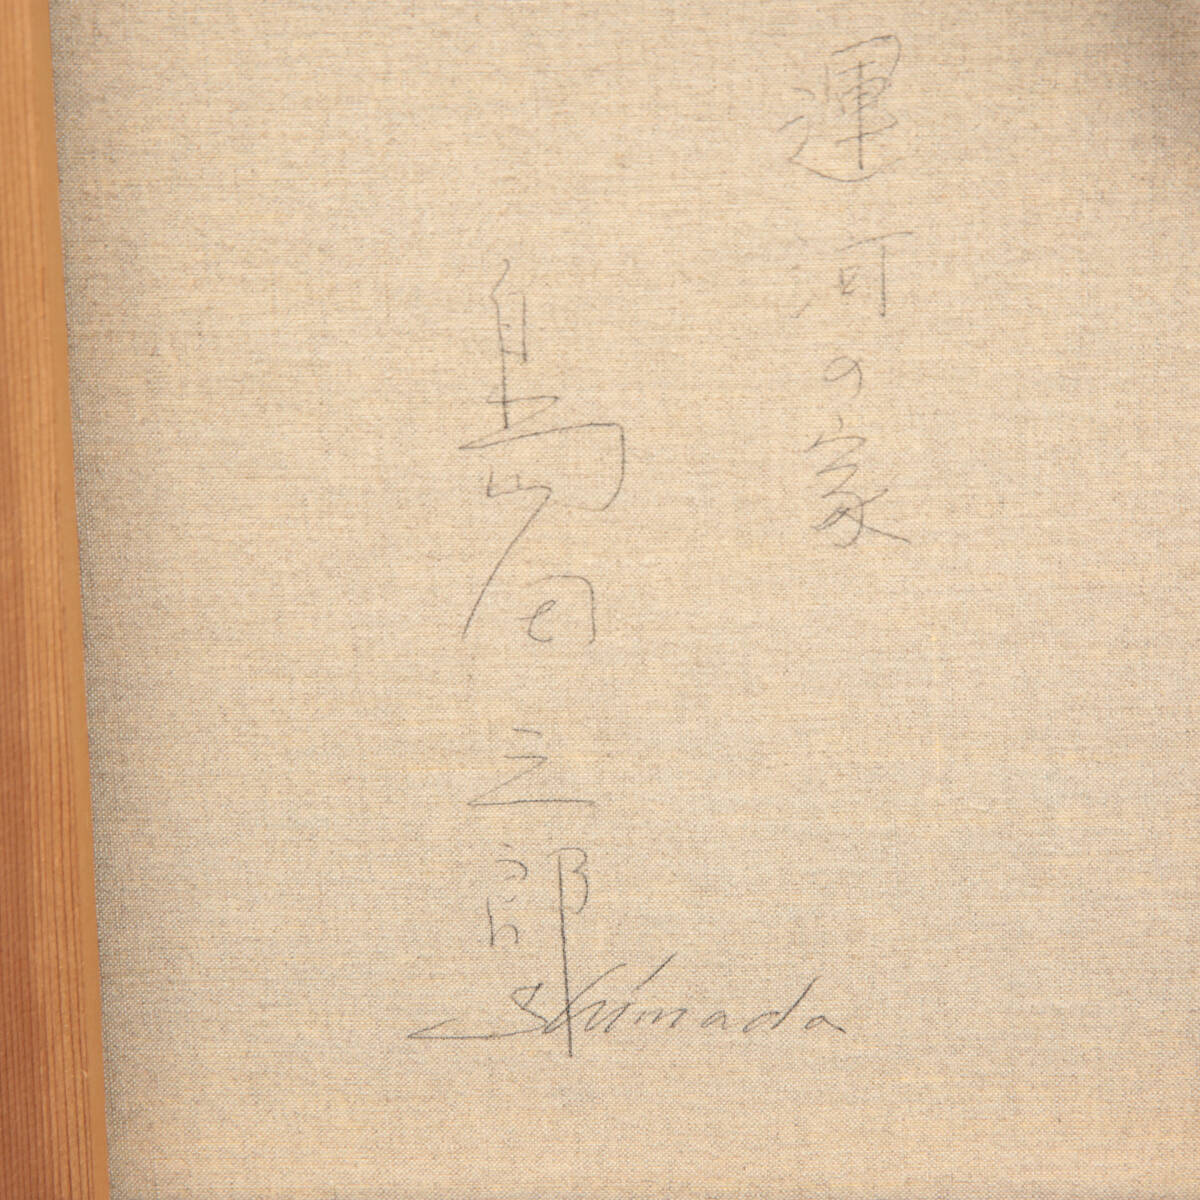 運河の家
島田三郎
Shimada